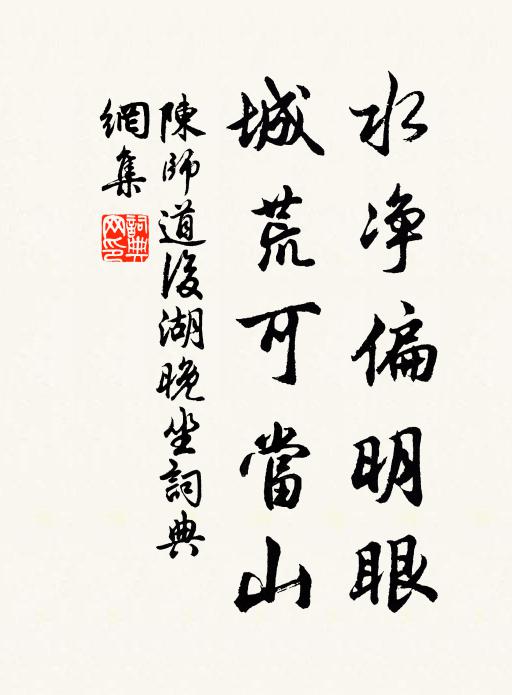 水净偏明眼
城荒可當山
陳師道後湖晚坐詞典
網集
詞典網印